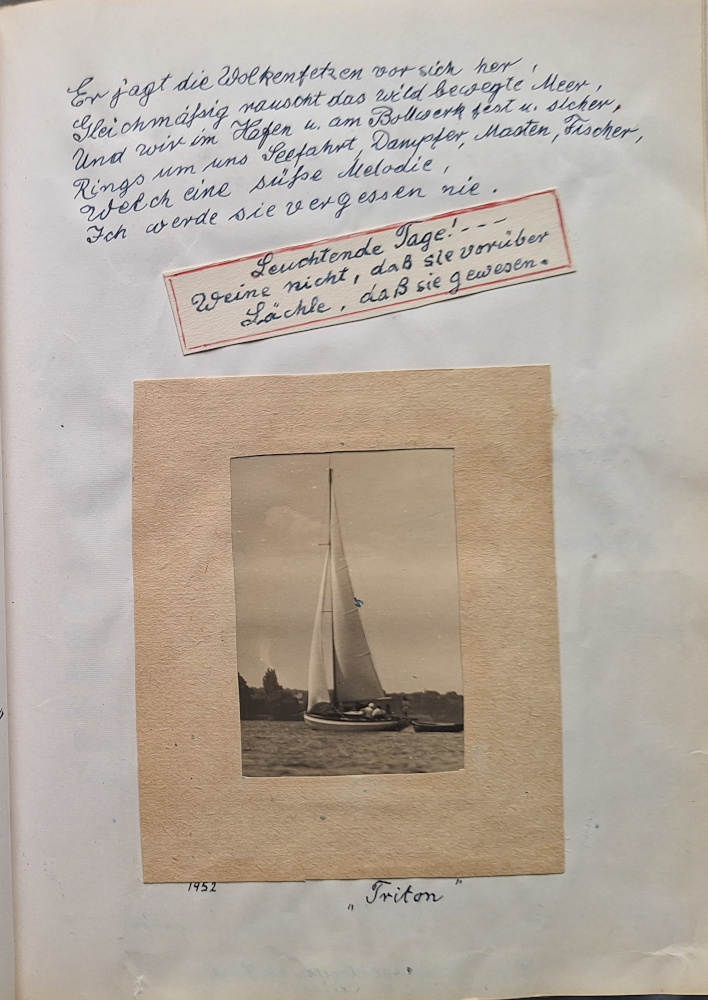 Er jagt die Wolkenfetzen vor sich her,
Gleichmäßig rauscht das wild bewegte Meer,
Und wir im Hafen u. am Bollwerk fest u. sicher,
Rings um uns Seefahrt, Dampfer, Masten, Fischer,
Welch eine süße Melodie,
Ich werde sie vergessen nie.
Leuchtende Tage! - - -
Weine nicht, daß sie vorüber
Lächle, daß sie gewesen.
1952
„Triton"